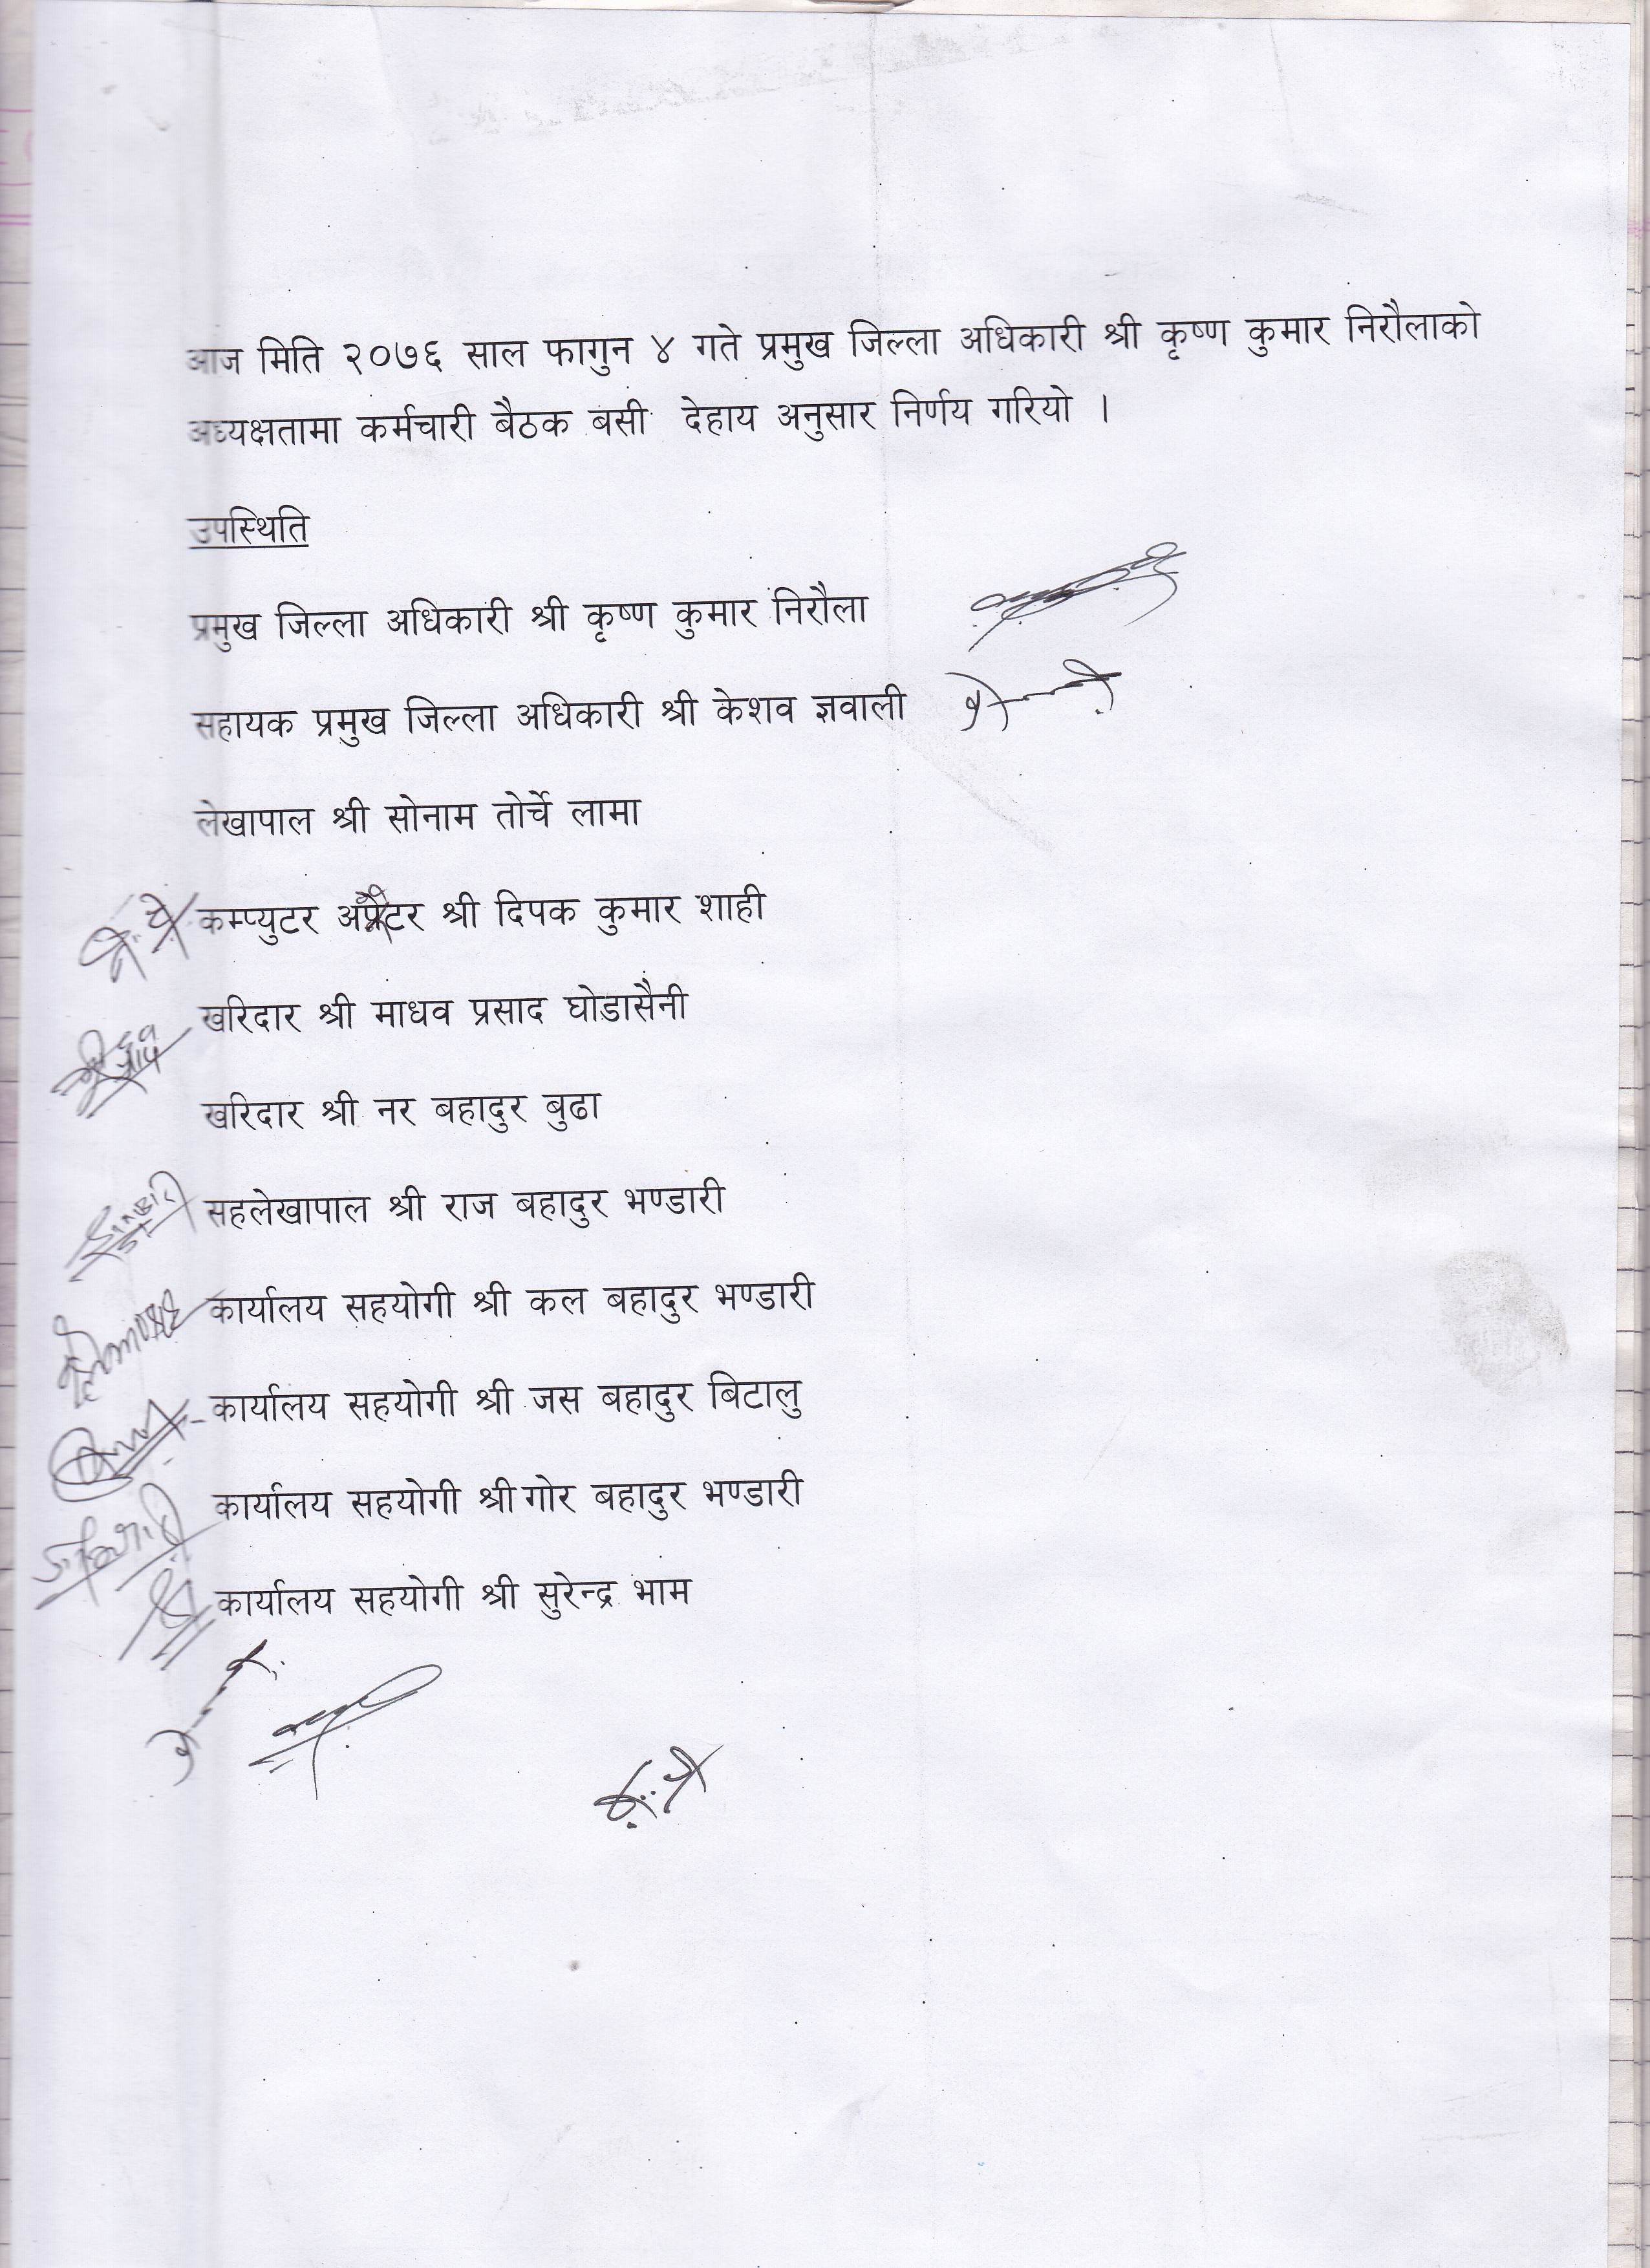 आज मिति २०७६ साल फागुन ४ गते प्रमुख जिल्ला अधिकारी श्री कृष्ण कुमार निरौलाको
अध्यक्षतामा कर्मचारी बैठक बसी देहाय अनुसार निर्णय गरियो ।
उपस्थिति
प्रमुख जिल्ला अधिकारी श्री कृष्ण कुमार निरौला
सहायक प्रमुख जिल्ला अधिकारी श्री केशव ज्ञवाली
लेखापाल श्री सोनाम तोर्चे लामा
कम्प्युटर श्री दिपक कुमार शाही
खरिदार श्री माधव प्रसाद घोडासैनी
खरिदार श्री नर बहादुर बुढा
सहलेखापाल श्री राज बहादुर भण्डारी
कार्यालय सहयोगी श्री कल बहादुर भण्डारी
कार्यालय सहयोगी श्री जस बहादुर बिटालु
कार्यालय सहयोगी श्री गोर बहादुर भण्डारी
कार्यालय सहयोगी श्री सुरेन्द्र भाम